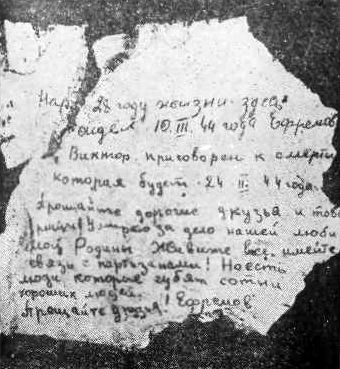 28 году жизни здесь
сидел 10.III.44 года Ефремов
Виктор. приговорен к смерти
которая будет 24 II. 44 года.
Прощайте дорогие друзья и това
рищи! Умираю за дело нашей люби
мой Родины Живите все, имейте
связи с партизанами! Но есть
люди, которые губят сотни
хороших людей.
Прощайте друзья! Ефремов